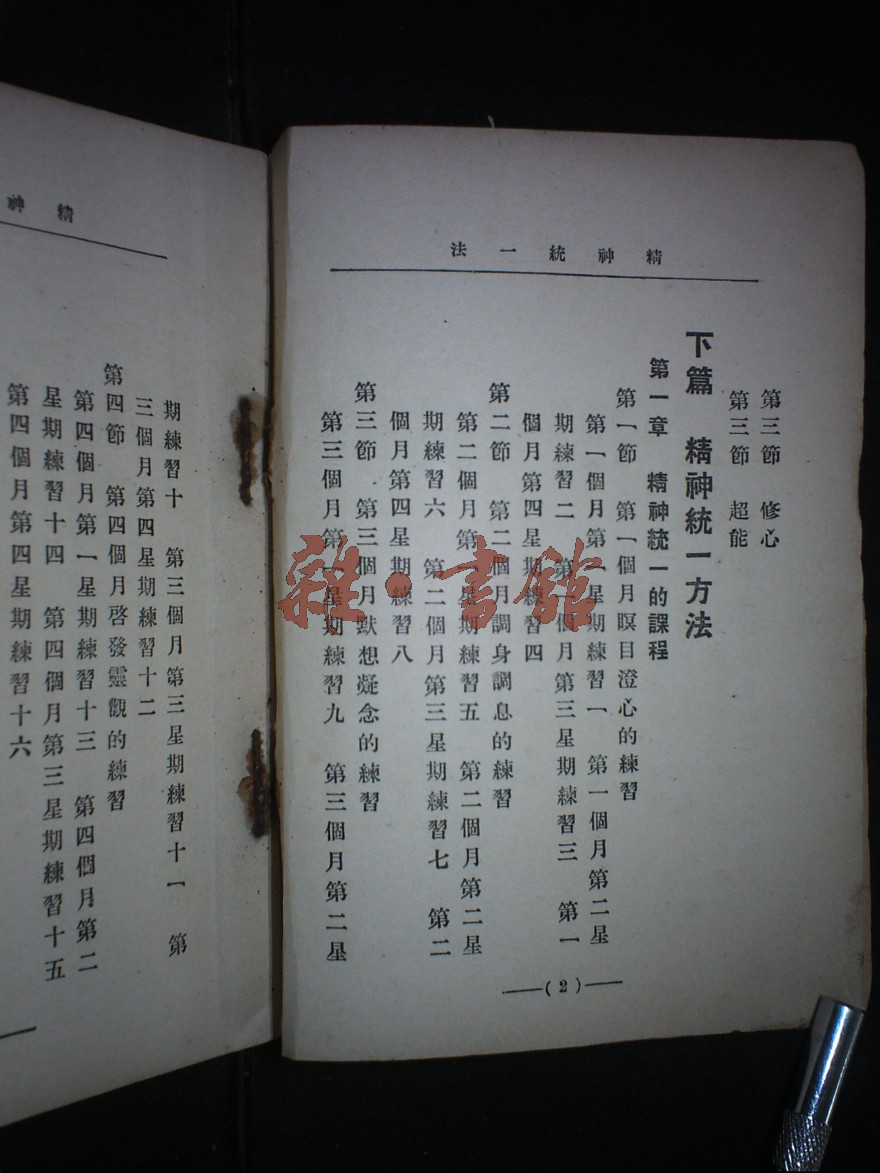 精神統一法
第三節　修心
第三節　超能
下篇　精神統一方法
第一章　精神統一的課程
第一節　第一個月瞑目澄心的練習
第一個月第一星期練習一　第一個月第二星
期練習二　第一個月第三星期練習三　第一
個月第四星期練習四
第二節　第二個月調身調息的練習
第二個月第一星期練習五　第二個月第二星
期練習六　第二個月第三星期練習七　第二
個月第四星期練習八
第三節　第三個月默想疑念的練習
第三個月第一星期練習九　第三個月第二星
(2)
精神
期練習十　第三個月第三星期練習十一　第
三個月第四星期練習十二
第四節　第四個月啓發靈觀的練習
第四個月第一星期練習十三　第四個月第二
星期練習十四　第四個月第三星期練習十五
第四個月第四星期練習十六
雜·書館